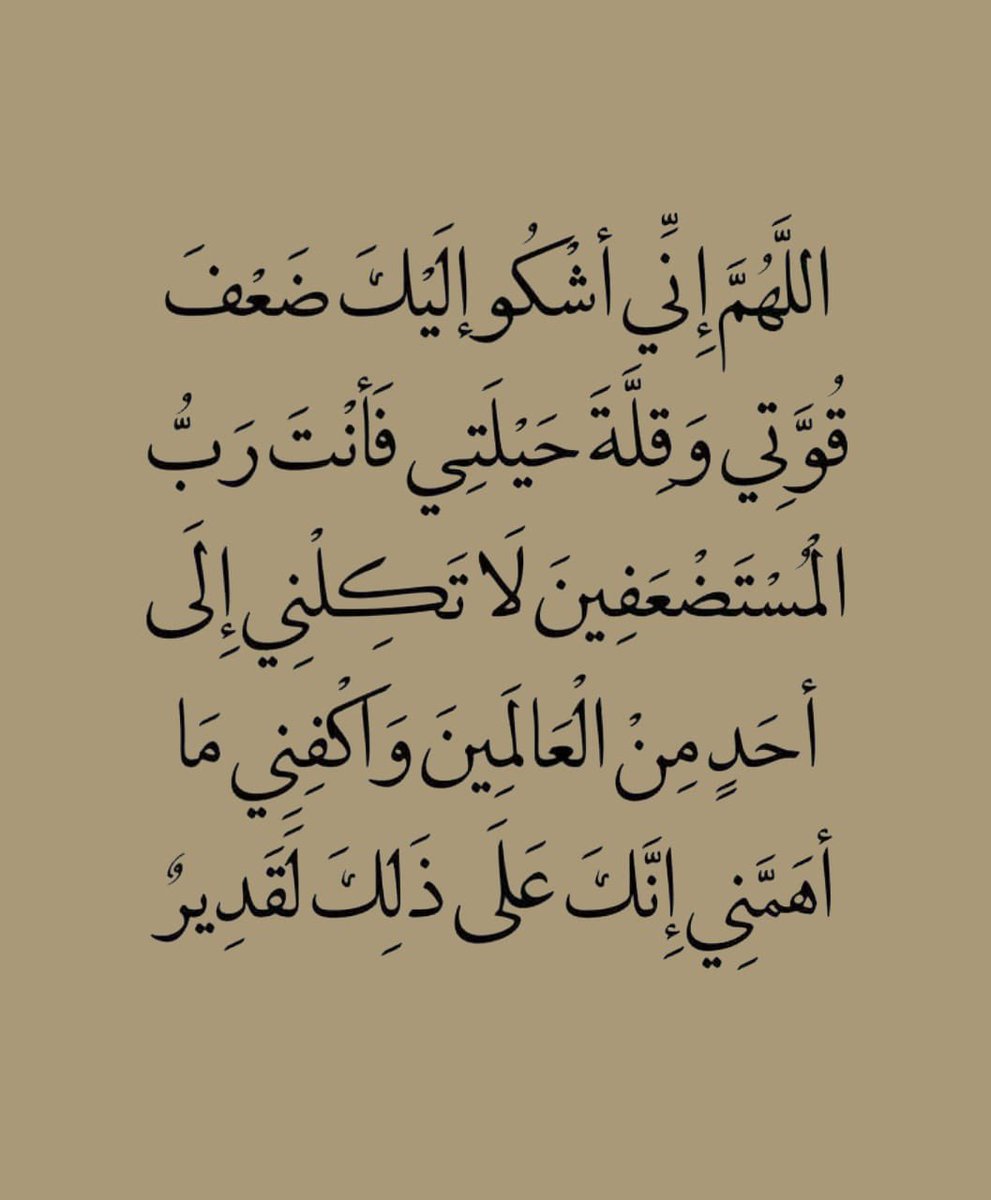 اللَّهُمَّ إِنِّي أشْكُو إلَيْكَ ضَعْفَ
قُوَّتِي وَقِلَّةَ حَيْلَتِي فَأنْتَ رَبُّ
الْمُسْتَضْعَفِينَ لَا تَكِلْنِي إِلَى
أحَدٍ مِنْ الْعَالَمِينَ وَاكْفِنِي مَا
أهَمَّنِي إِنَّكَ عَلَى ذَلِكَ لَقَدِيرٌ